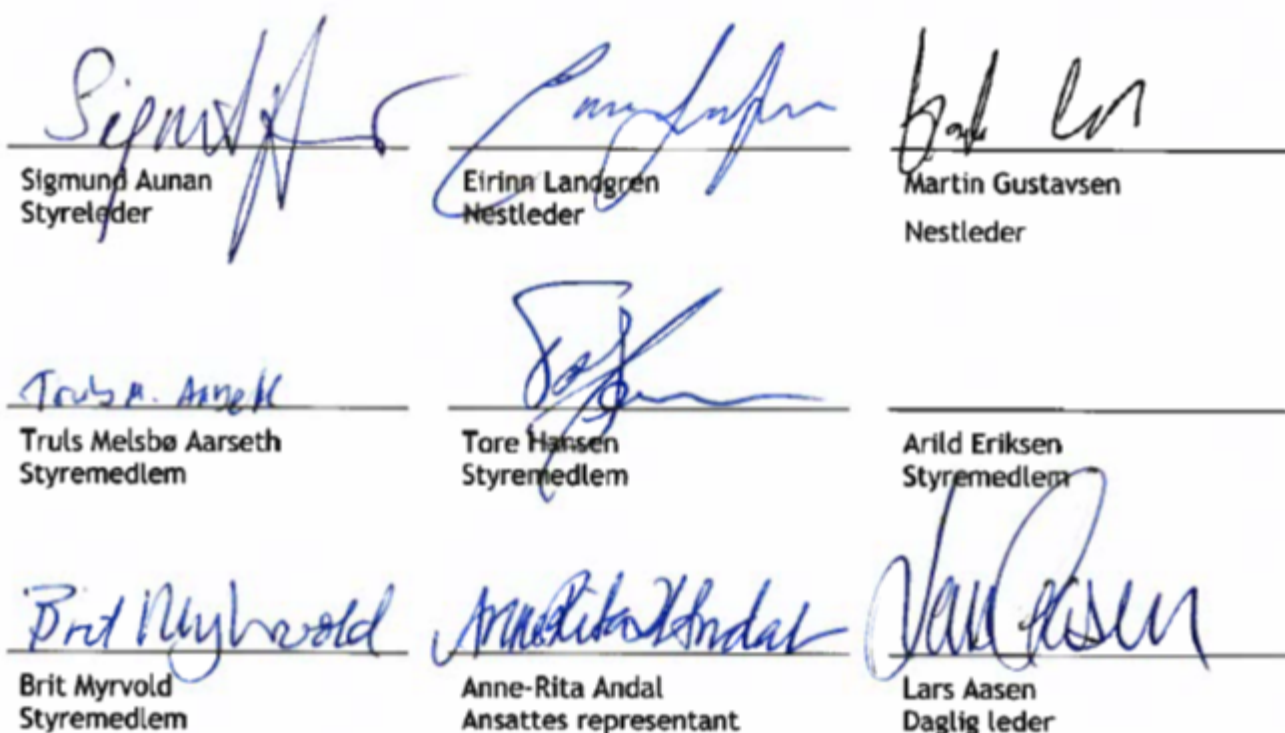 Sigmund Aunan
Styreleder
Eirinn Landgren
Nestleder
Martin Gustavsen
Nestleder
Truls M. Aarseth
Truls Melsbø Aarseth
Styremedlem
Tore Hansen
Styremedlem
Arild Eriksen
Styremedlem
Brit Myhrvold
Brit Myrvold
Styremedlem
Anne-Rita Andal
Ansattes representant
Lars Aasen
Daglig leder